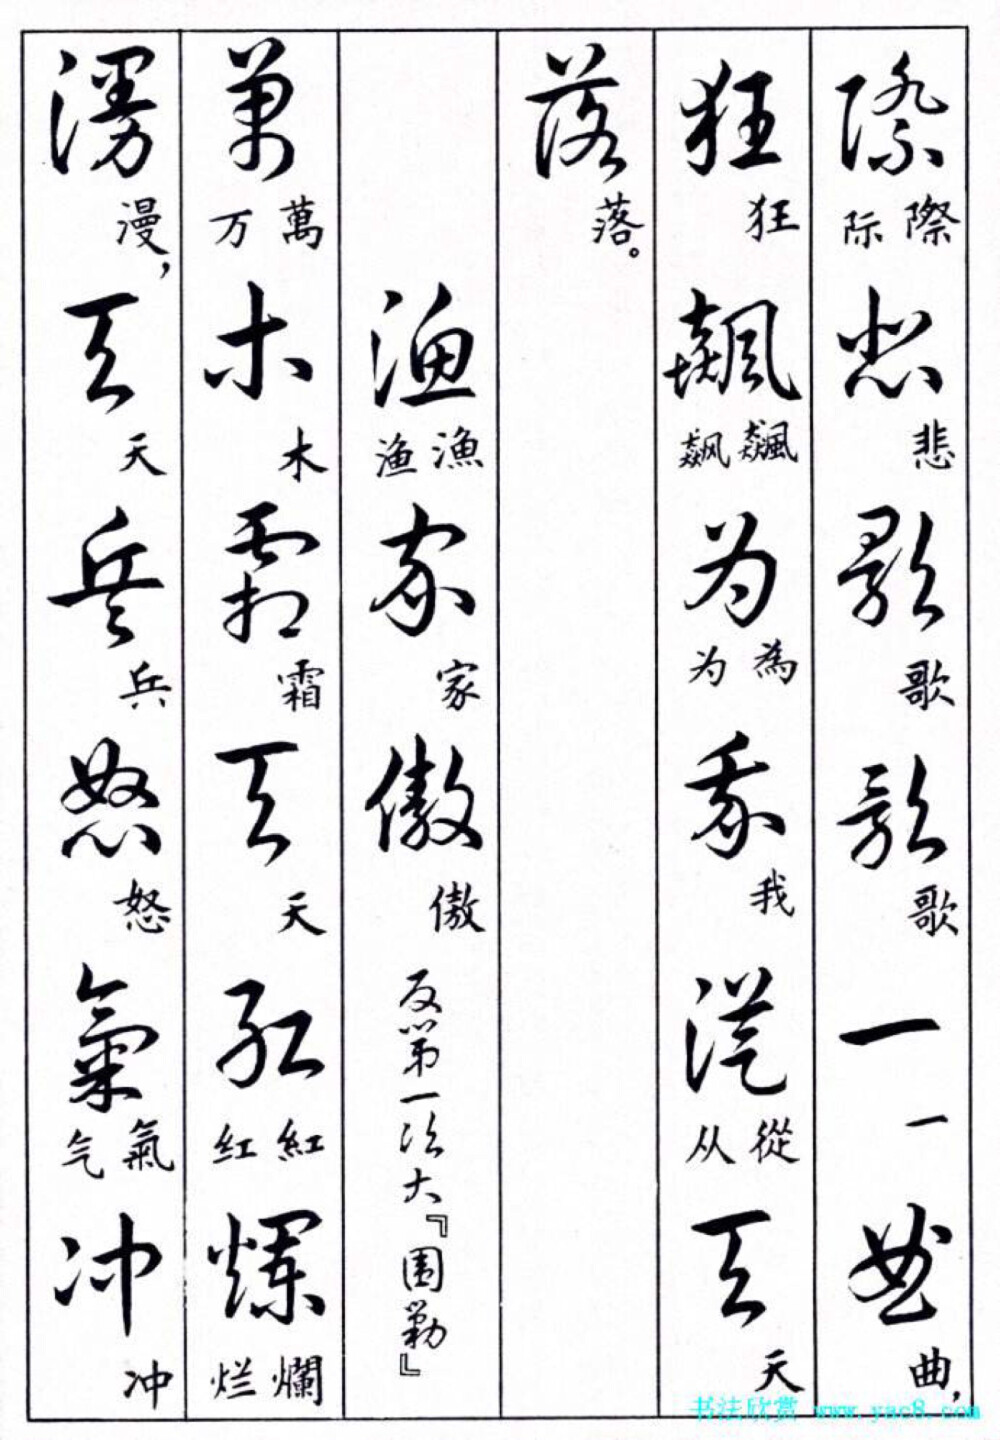 際 際 际 悲 悲 歌 歌 歌 歌 一 一 曲 曲，
狂 狂 飆 飆 飙 为 為 为 我 我 從 從 从 天 天
落 落。
渔 漁 渔 家 家 傲 傲 反第一次大『围勦』
萬 萬 万 木 木 霜 霜 天 天 红 紅 红 爛 爛 烂
漫 漫， 天 天 兵 兵 怒 怒 氣 氣 气 冲 冲
书法欣赏 www.yac8.com